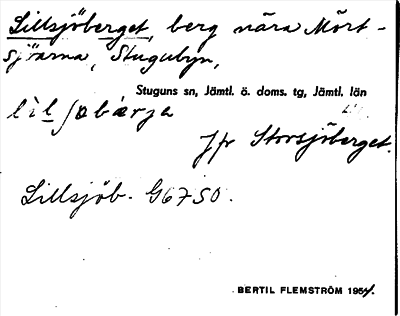 Lillsjöberget, berg nära Mört-
sjöarna, Stugubyn,
Stuguns sn, Jämtl. ö. doms. tg, Jämtl. län
Jfr Storsjöberget.
Lillsjöb. G6750.
BERTIL FLEMSTRÖM 1954.